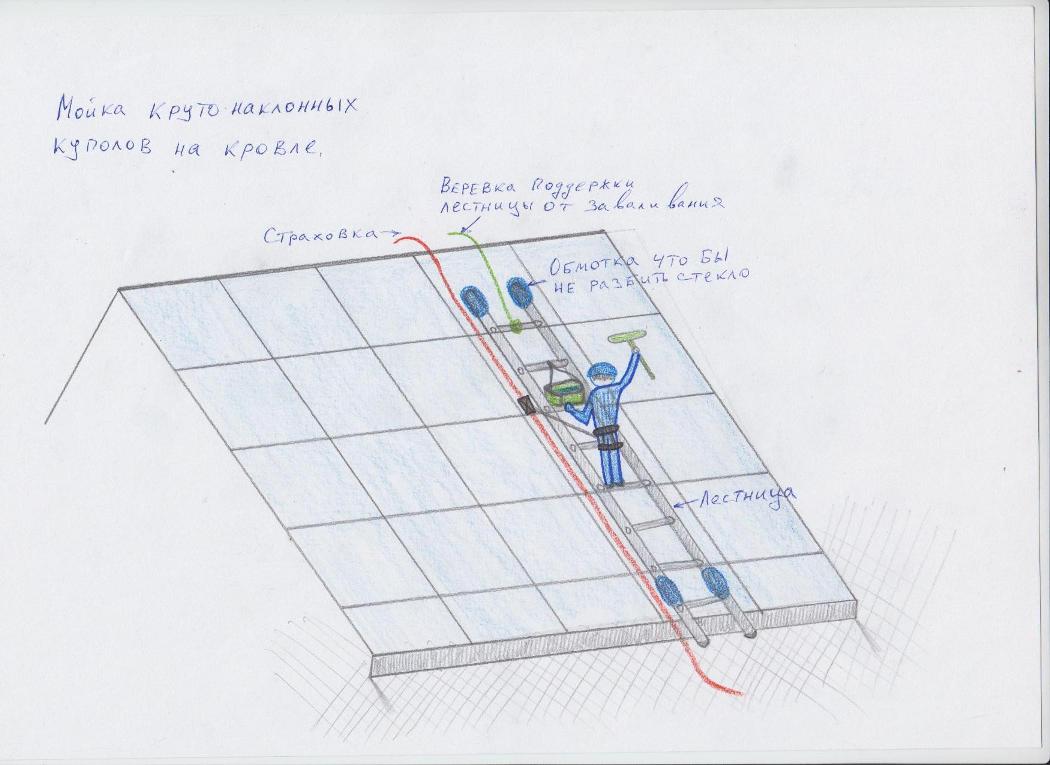 Мойка круто-наклонных
куполов на кровле.
Веревка поддержки
лестницы от заваливания
Страховка
Обмотка что бы
не разбить стекло
Лестница